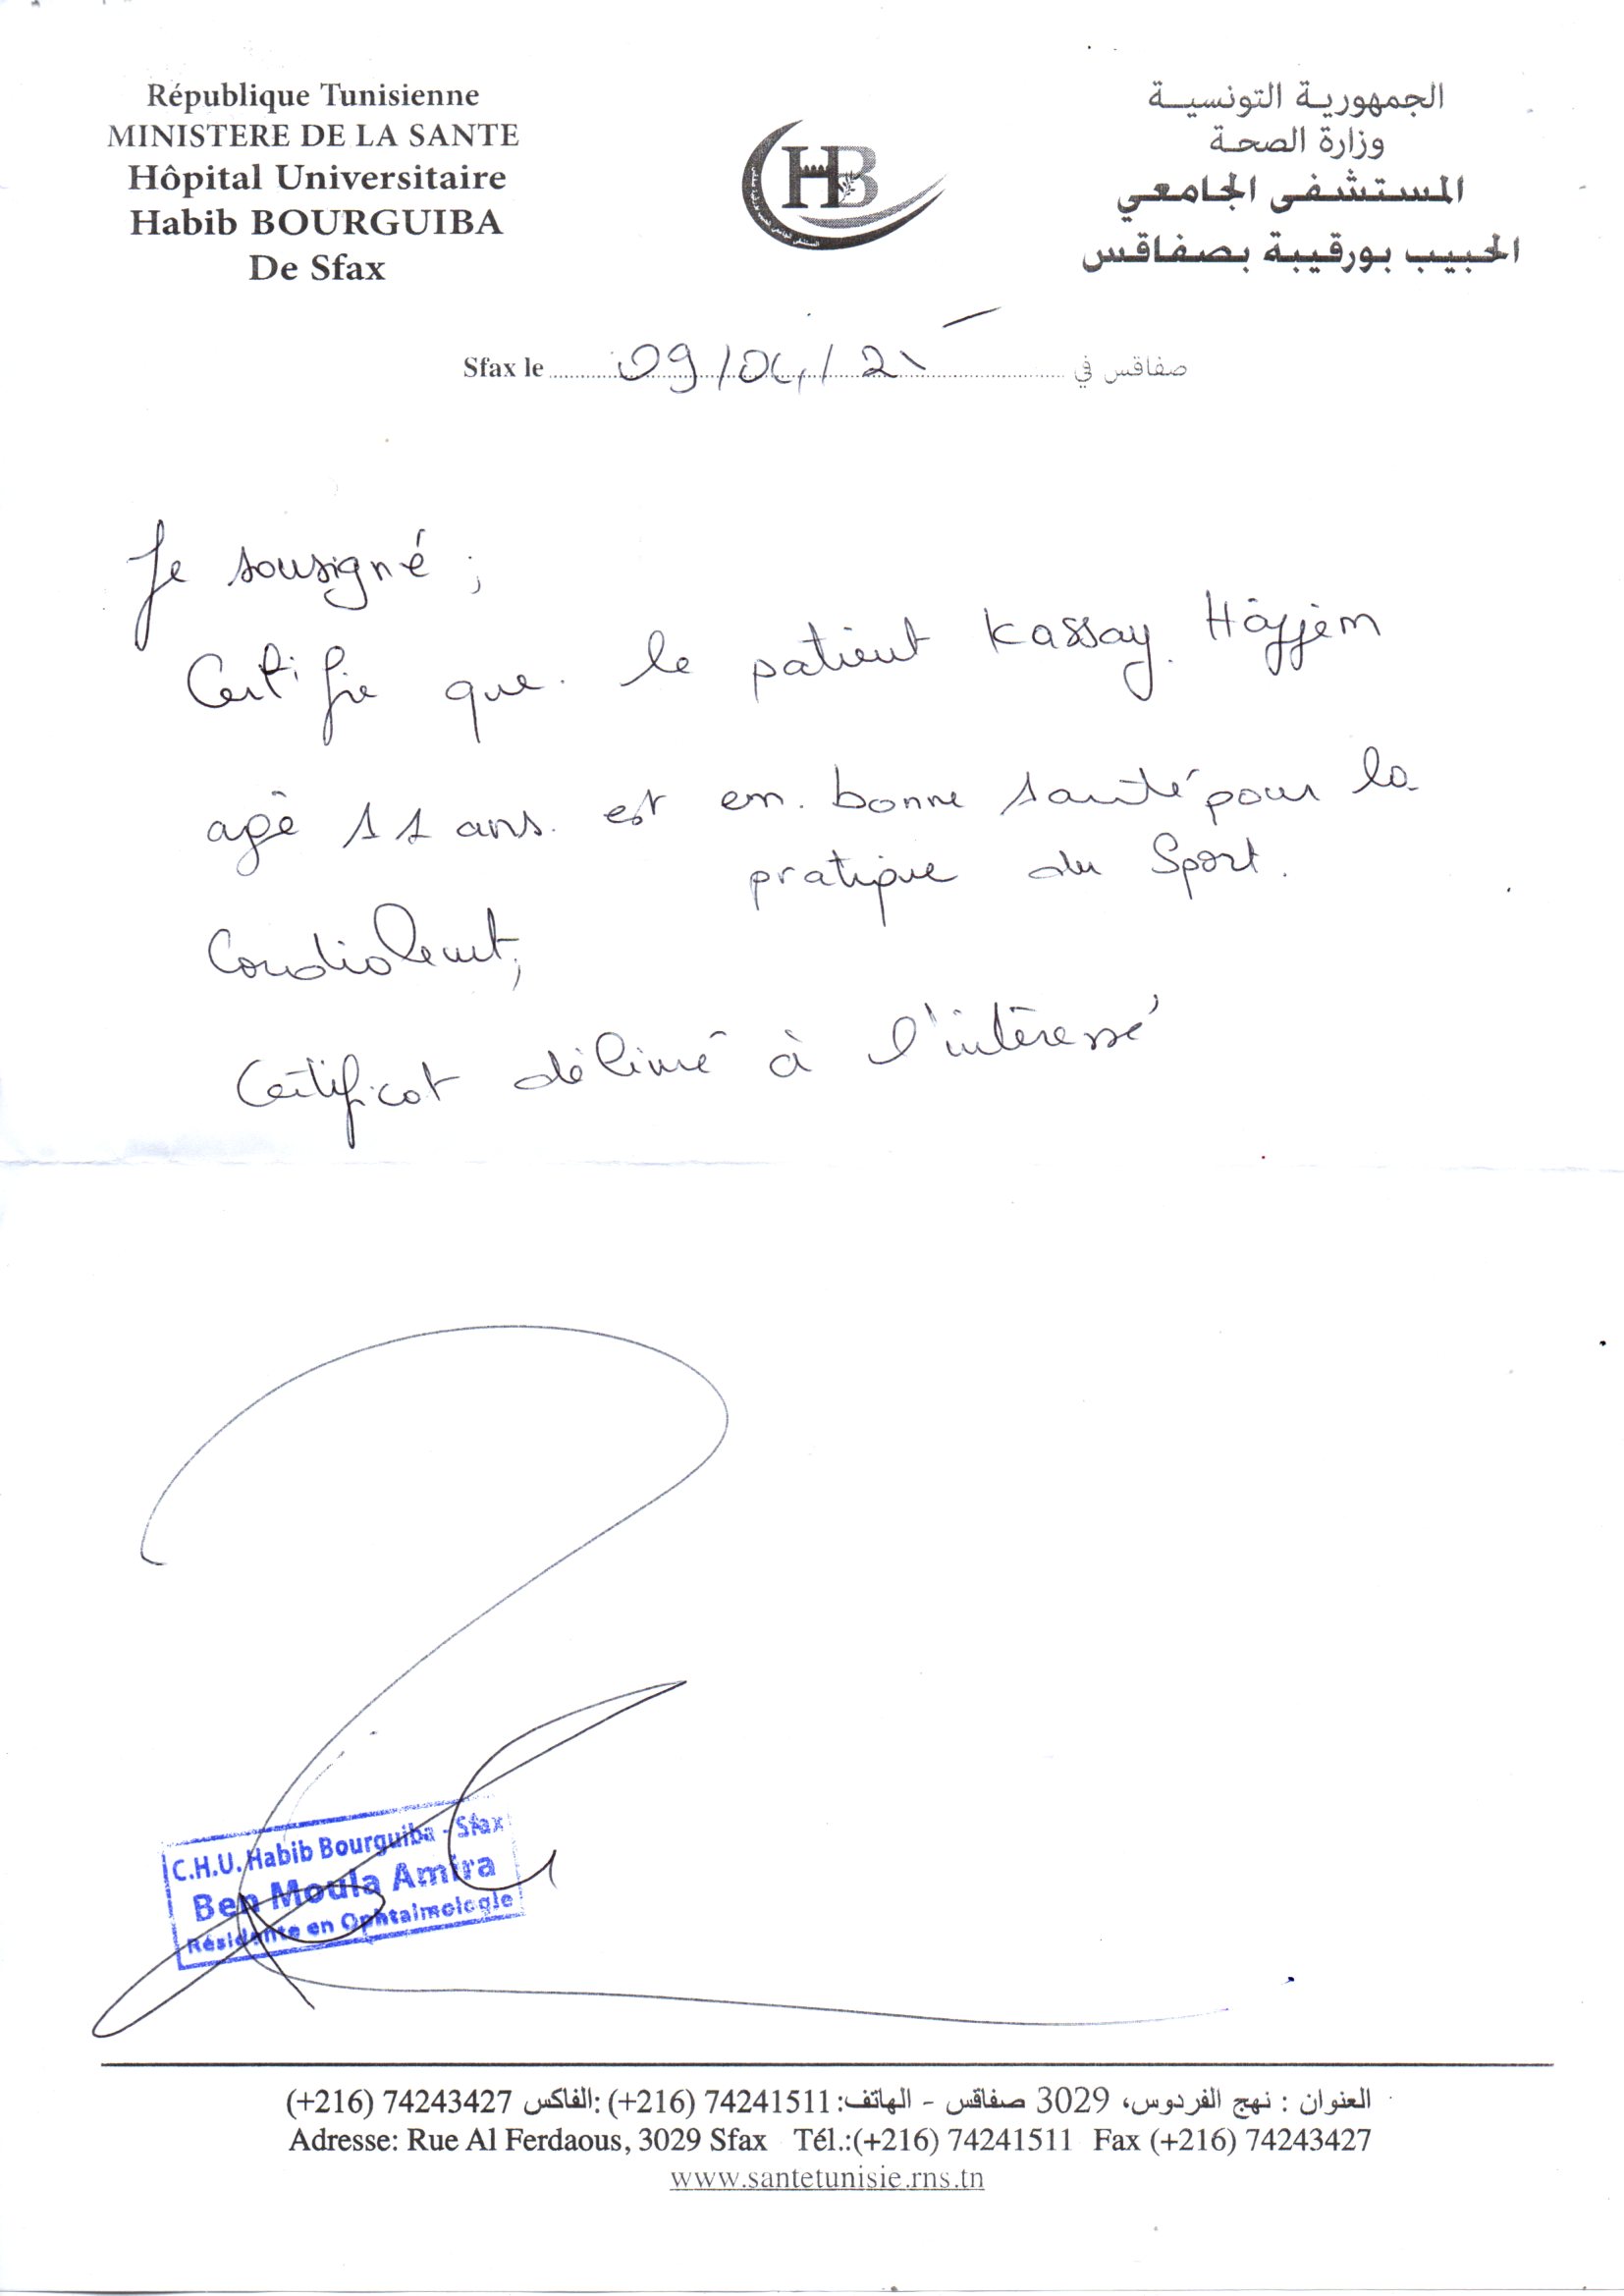 République Tunisienne
MINISTERE DE LA SANTE
Hôpital Universitaire
Habib BOURGUIBA
De Sfax
HB
الجمهورية التونسية
وزارة الصحة
المستشفى الجامعي
الحبيب بورقيبة بصفاقس
Sfax le 09/04/25 صفاقس في
Je sousigné ;
Certifie que le patient Kassay Hàjjèm
agé 11 ans est en bonne santé pour la
pratique du Sport.
Cordialemt,
Certificat délivré à l'intéressé
C.H.U. Habib Bourguiba - Sfax
Ben Moula Amira
Résidente en Ophtalmologie
العنوان : نهج الفردوس، 3029 صفاقس - الهاتف: 74241511 (216+) الفاكس: 74243427 (216+)
Adresse: Rue Al Ferdaous, 3029 Sfax Tél.:(+216) 74241511 Fax (+216) 74243427
www.santetunisie.rns.tn